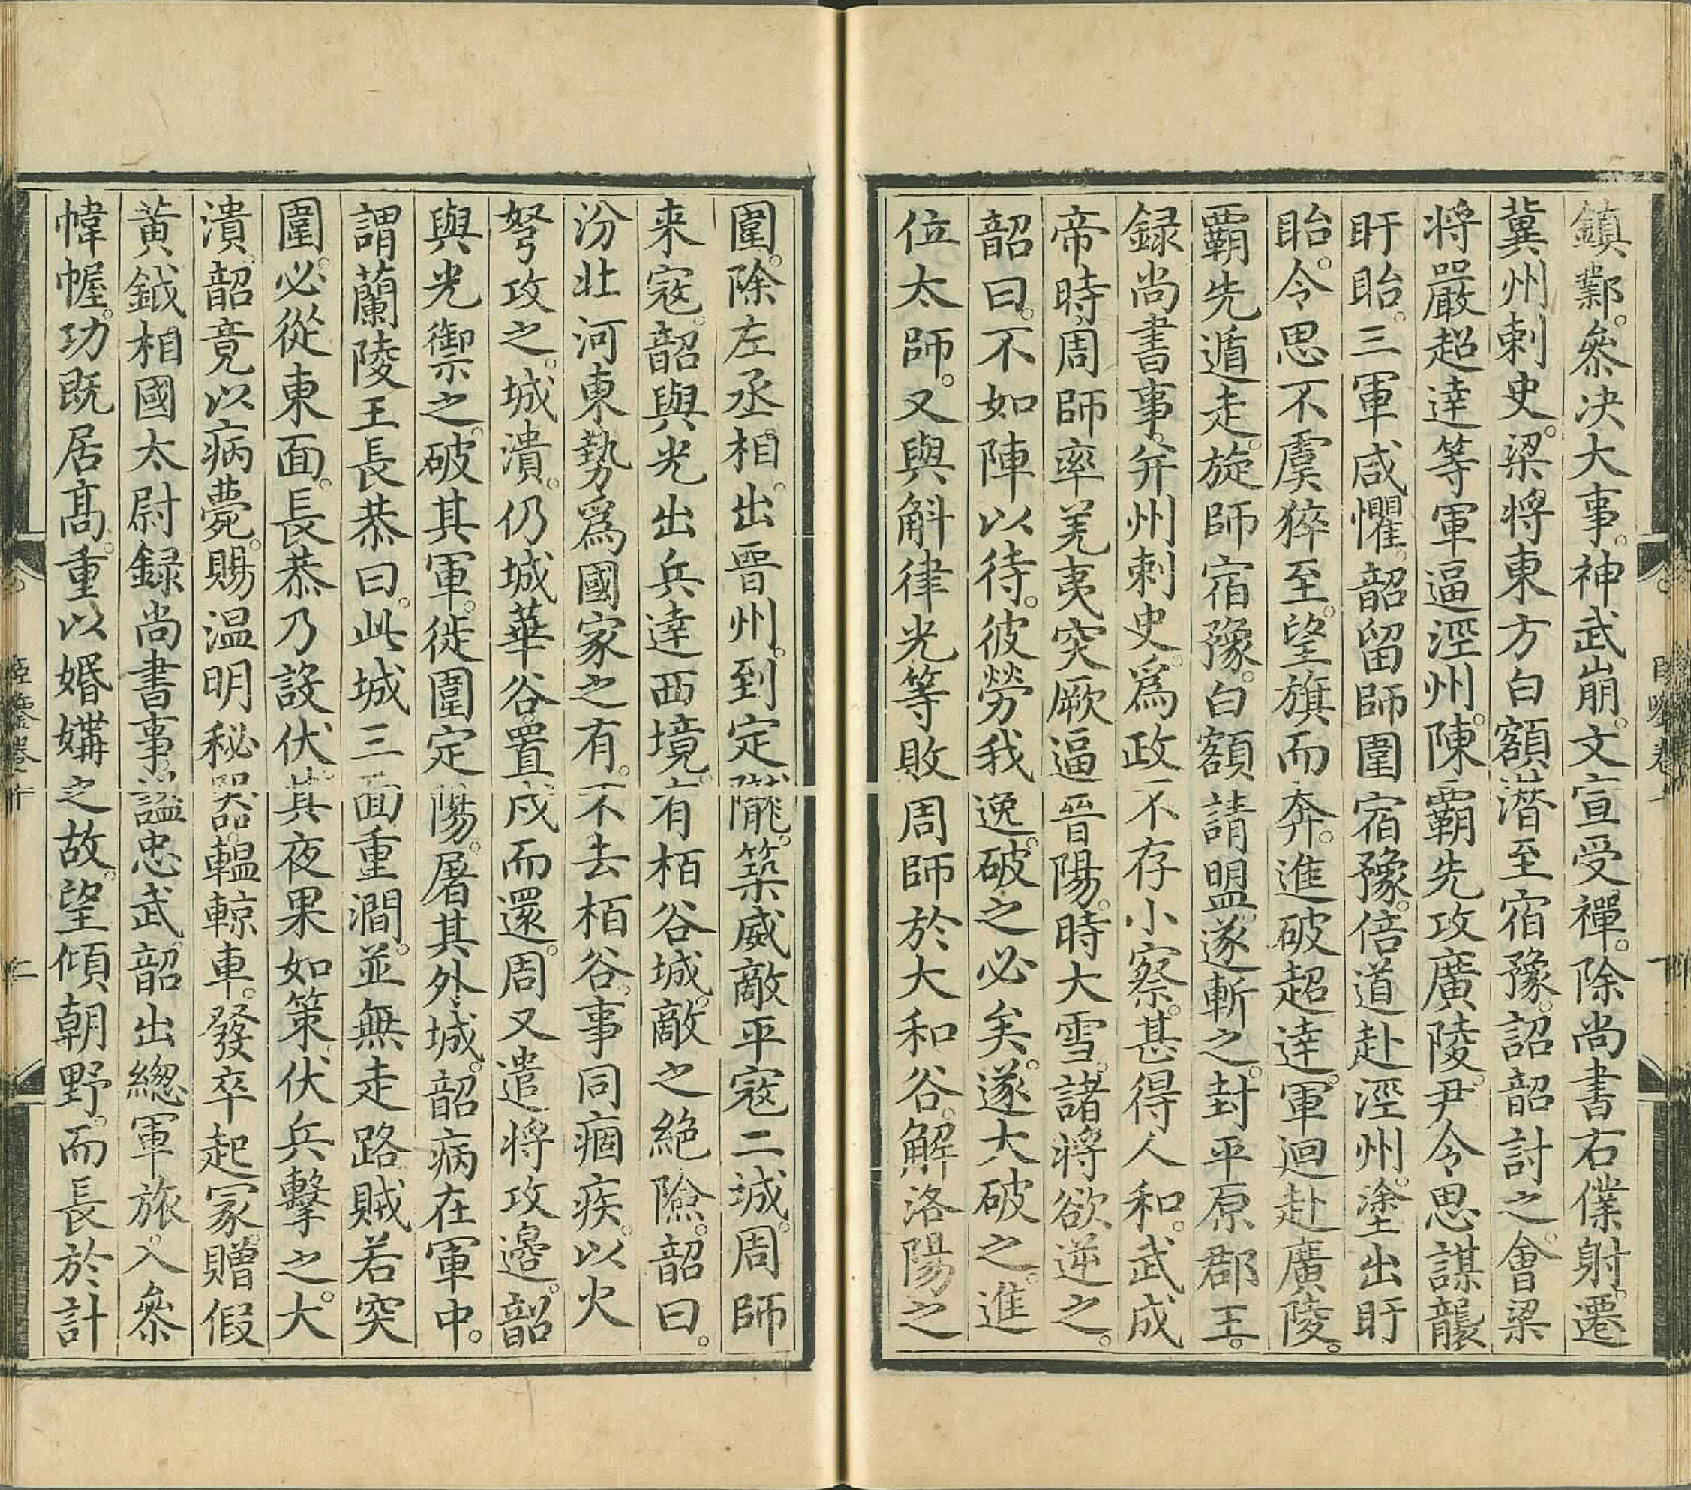 鎮鄴。參決大事。神武崩。文宣受禪。除尚書右僕射。遷
冀州刺史。梁將東方白額潛至宿豫。詔韶討之。會梁
將嚴超達等軍逼涇州。陳霸先攻廣陵。尹令思謀襲
盱眙。三軍咸懼。韶留師圍宿豫。倍道赴涇州。塗出盱
眙。令思不虞猝至。望旗而奔。進破超達軍。迴赴廣陵。
霸先遁走。旋師宿豫。白額請盟。遂斬之。封平原郡王。
録尚書事。并州刺史。爲政不存小察。甚得人和。武成
帝時。周師率羌夷突厥逼晉陽。時大雪。諸將欲逆之。
韶曰。不如陣以待。彼勞我逸。破之必矣。遂大破之。進
位太師。又與斛律光等敗周師於大和谷。解洛陽之
圍。除左丞相。出晉州。到定隴。築威敵平寇二城。周師
来寇。韶與光出兵達西境。有栢谷城。敵之絶險。韶曰。
汾北河東勢爲國家之有。不去栢谷。事同痼疾。以火
弩攻之。城潰。仍城華谷置戍而還。周又遣將攻邊。韶
與光禦之。破其軍。徙圍定陽。屠其外城。韶病在軍中。
謂蘭陵王長恭曰。此城三面重澗。並無走路。賊若突
圍。必從東面。長恭乃設伏。其夜果如策。伏兵擊之。大
潰。韶竟以病薨。賜温明秘器。轀輬車。發卒起冢。贈假
黄鉞相國太尉録尚書事。諡忠武。韶出總軍旅。入參
幃幄。功既居髙。重以婚媾之故。望傾朝野。而長於計